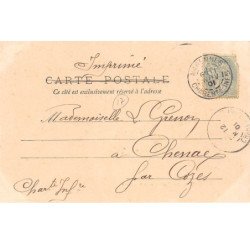 Imprimé
CARTE POSTALE
Ce côté est exclusivement réservé à l'adresse
Mademoiselle L. Grenon
à Chenac
par Cozes
Charte Infre